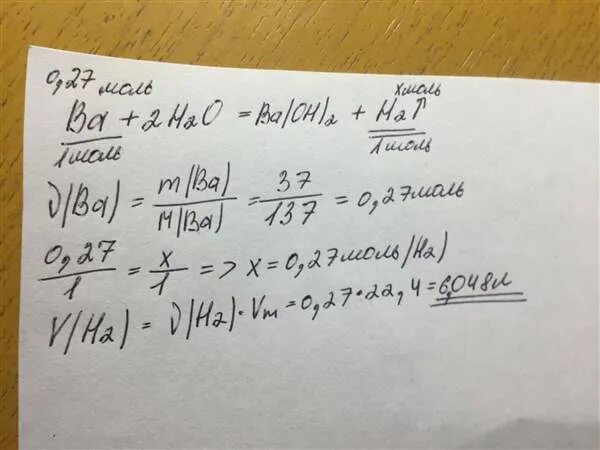 0,27 моль х моль
Ba + 2H₂O = Ba(OH)₂ + H₂↑
1 моль 1 моль
ν(Ba) = m(Ba)/M(Ba) = 37/137 = 0,27 моль
0,27/1 = x/1 => x = 0,27 моль (H₂)
V(H₂) = ν(H₂)·Vm = 0,27·22,4 = 6,048 л